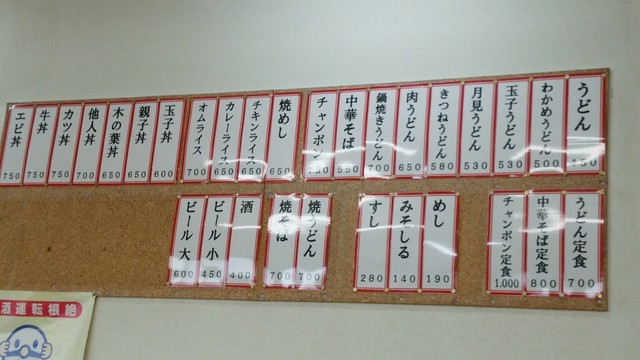 うどん 450
わかめうどん 500
玉子うどん 530
月見うどん 530
きつねうどん 580
肉うどん 650
鍋焼きうどん 700
中華そば 550
チャンポン 750
焼めし 650
チキンライス 650
カレーライス 650
オムライス 700
玉子丼 600
親子丼 650
木の葉丼 650
他人丼 700
カツ丼 750
牛丼 750
エビ丼 750
うどん定食 700
中華そば定食 800
チャンポン定食 1,000
めし 190
みそしる 140
すし 280
焼うどん 700
焼そば 700
酒 400
ビール 小 450
ビール 大 600
酒運転根絶